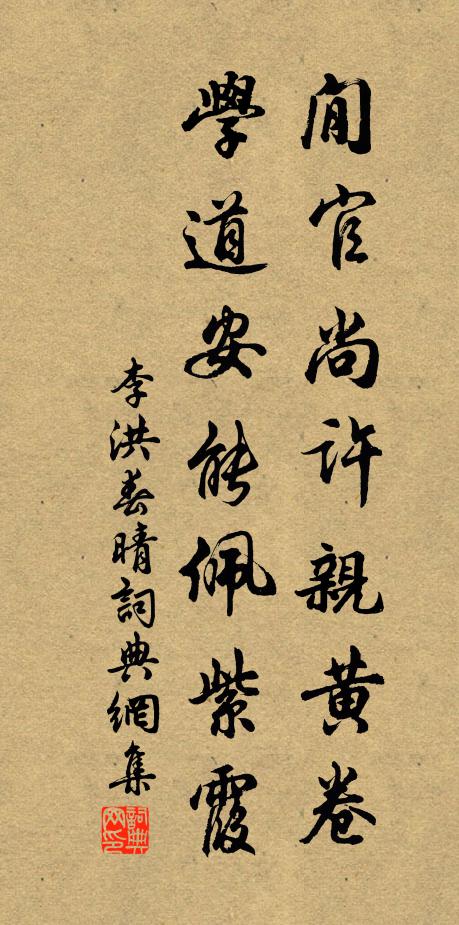 閒官尚許親黃卷
學道安能佩紫霞
李洪春晴詞典網集
詞典網印